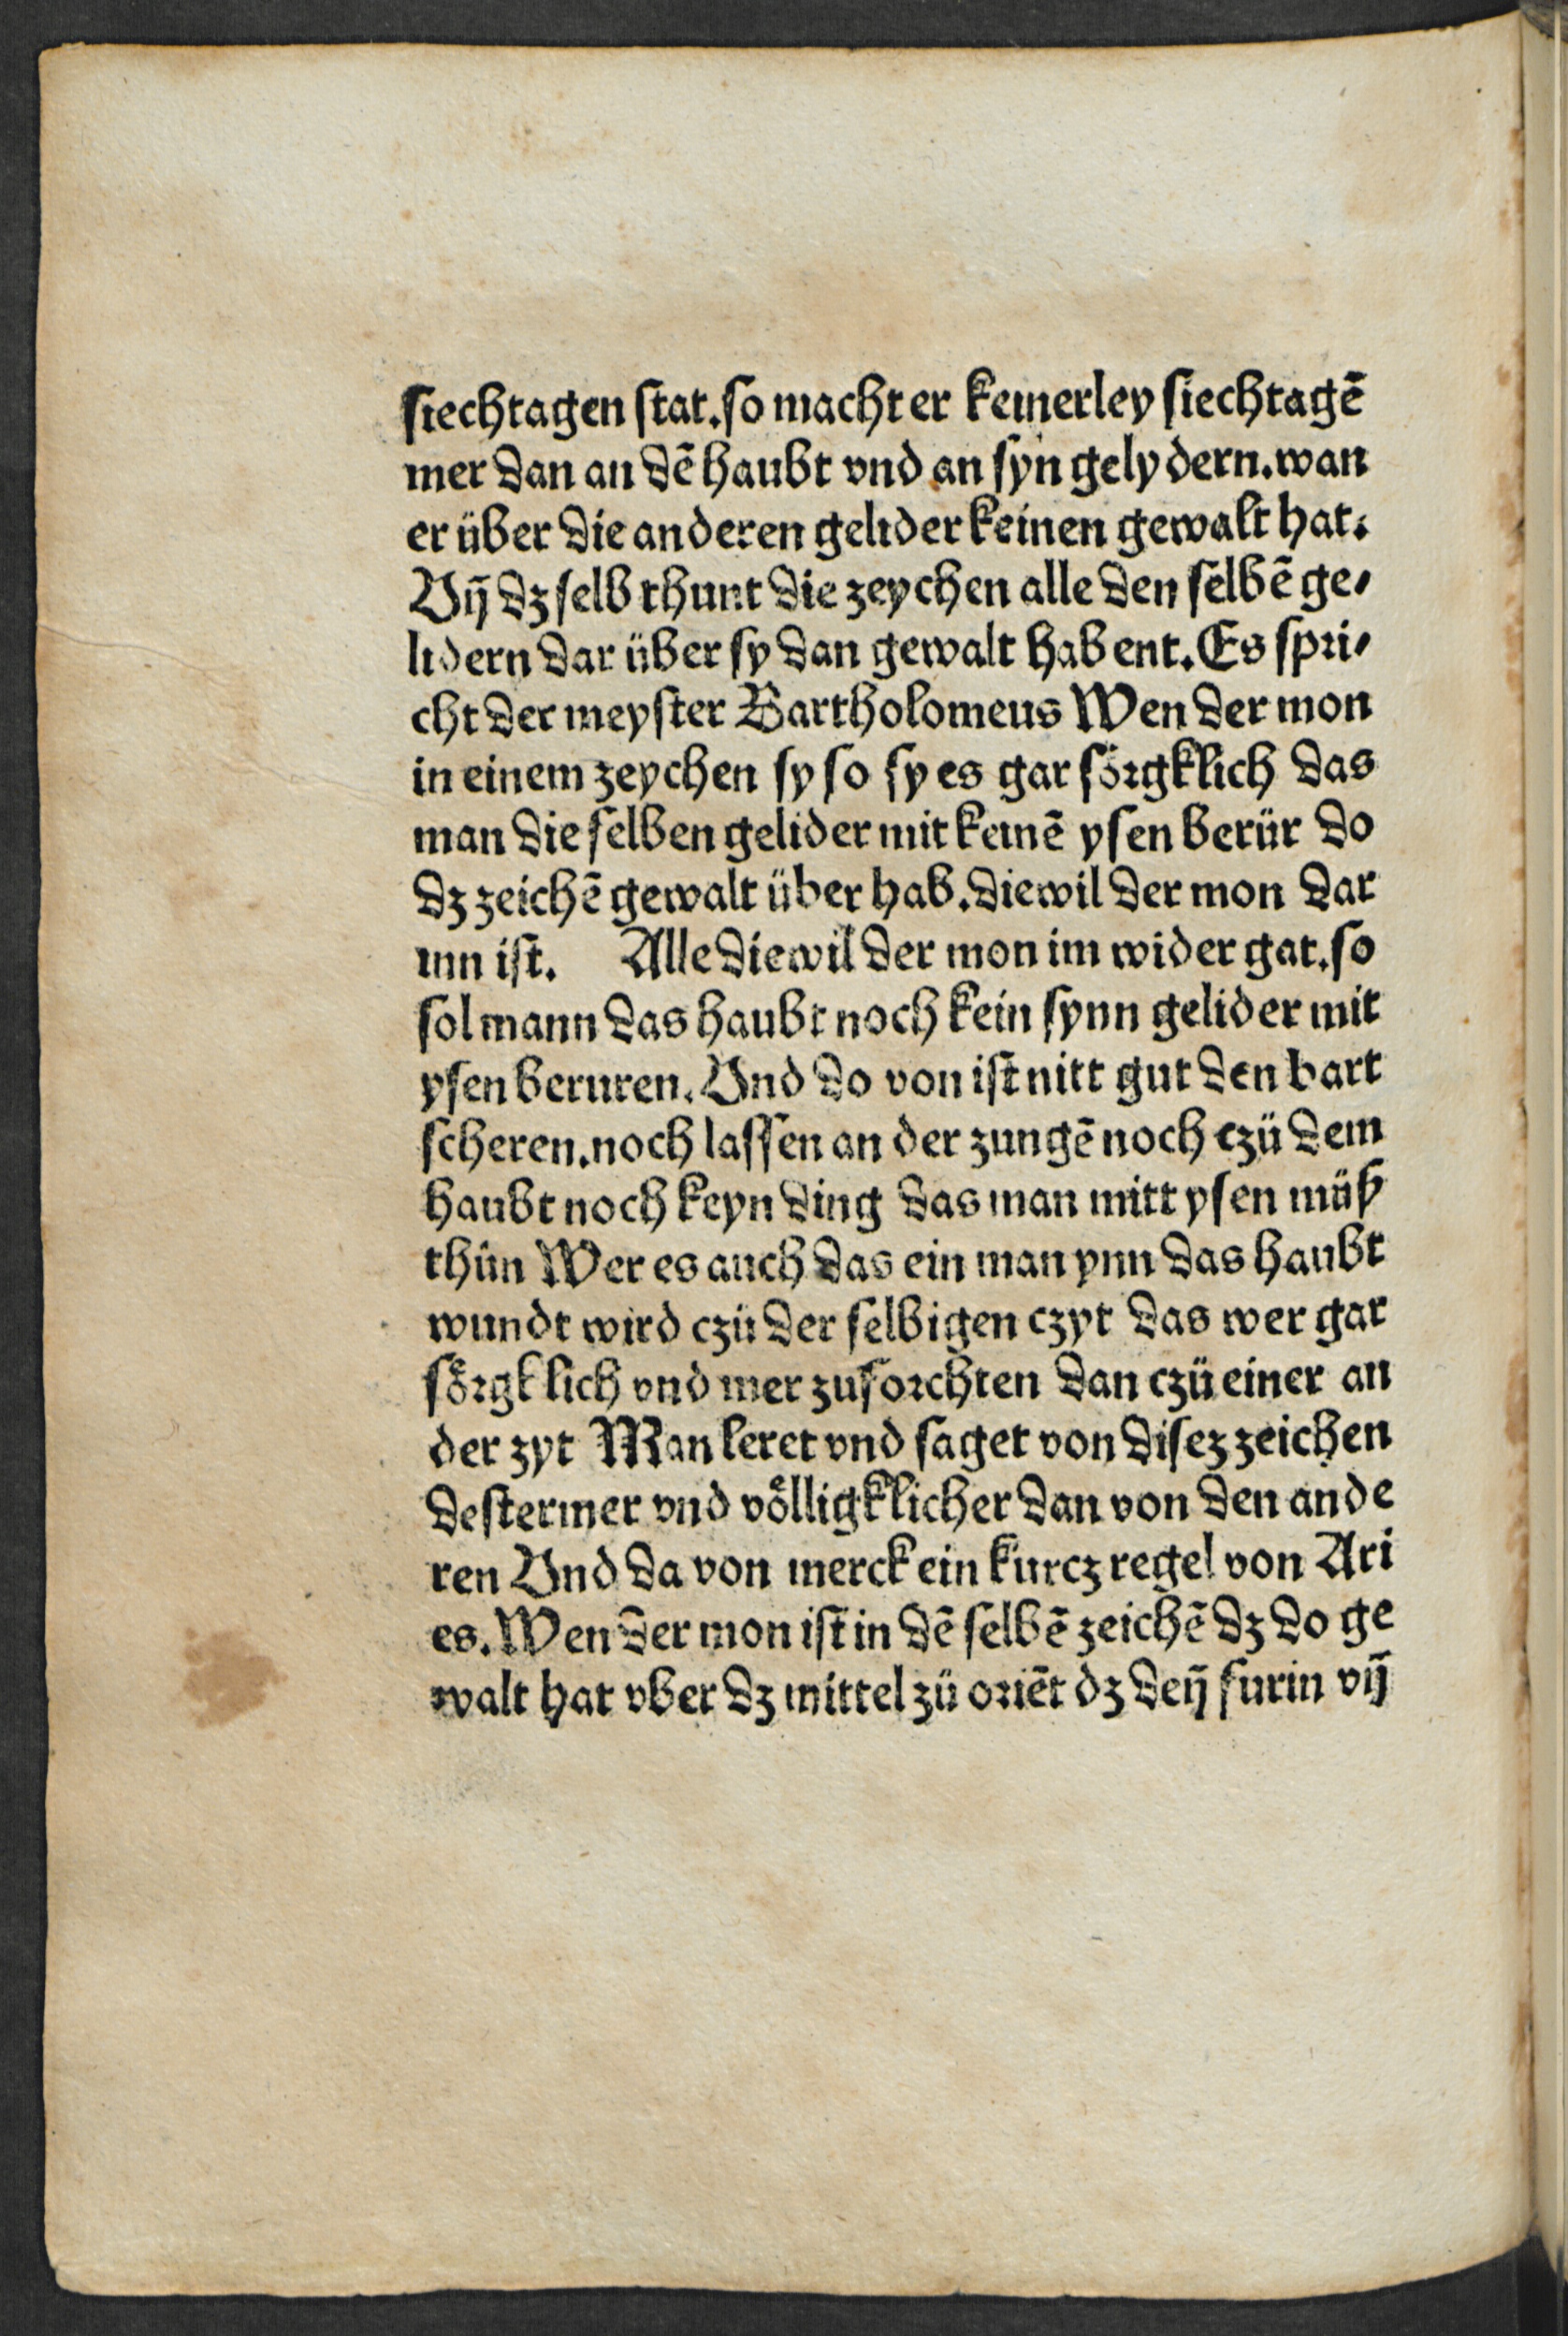 siechtagen stat. so macht er keinerley siechtagē
mer dan an dē haubt vnd an syn gelydern. wan
er über die anderen gelider keinen gewalt hat.
Vn̄ dz selb thunt die zeychen alle den selbē ge⸗
lidern dar über sy dan gewalt habent. Es spri⸗
cht der meyster Bartholomeus Wen der mon
in einem zeychen sy so sy es gar sörgklich das
man die selben gelider mit keinē ysen berür do
dz zeichē gewalt über hab. diewil der mon dar
inn ist. Alle diewil der mon im wider gat. so
sol mann das haubt noch kein synn gelider mit
ysen beruren. Und do von ist nitt gut den bart
scheren. noch lassen an der zungē noch czü dem
haubt noch keyn ding das man mitt ysen müß
thün Wer es auch das ein man ynn das haubt
wundt wird czü der selbigen czyt das wer gar
sörgklich vnd mer zuforchten dan czü einer an
der zyt Man leret vnd saget von disez zeichen
destermer vnd völligklicher dan von den ande
ren Und da von merck ein kurcz regel von Ari
es. Wen der mon ist in dē selbē zeichē dz do ge
walt hat vber dz mittel zü oriēt dz den̄ furin vn̄